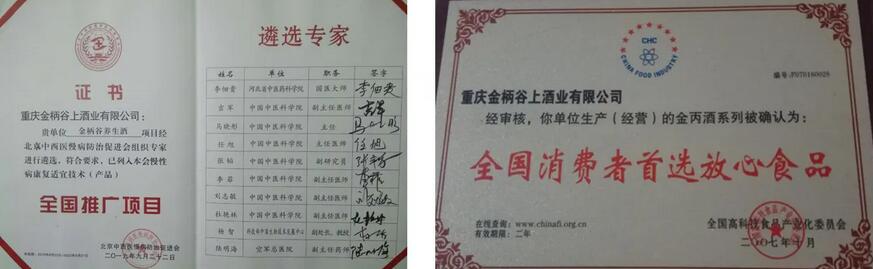 证书
重庆金柄谷上酒业有限公司：
贵单位 金柄谷养生酒 项目经
北京中西医慢病防治促进会组织专家
进行遴选，符合要求，已列入本会慢性
病康复适宜技术（产品）
全国推广项目
北京中西医慢病防治促进会
二〇一九年九月二十二日
遴选专家
姓名 单位 职务 签字
李佃贵 河北省中医药科学院 国医大师 李佃贵
吉军 中国中医科学院 副主任医师 吉军
马晓彤 中国中医科学院 主任
任旭 中国中医科学院 主任医师 任旭
张铂 中国中医科学院 副研究员
李蕊 中国中医科学院 副主任医师
刘志敏 中国中医科学院 副主任医师
杜艳林 中国中医科学院 副主任医师
杨智 副处长，教授
陆明海 空军总医院 副主任药师
CHC
CHINA FOOD INDUSTRY
编号：JF070160028
重庆金柄谷上酒业有限公司
经审核，你单位生产（经营）的金丙酒系列被确认为：
全国消费者首选放心食品
在线查询：www.chinafi.org.cn
有效期限：二年
全国高科技食品产业化委员会
二〇〇七年十月